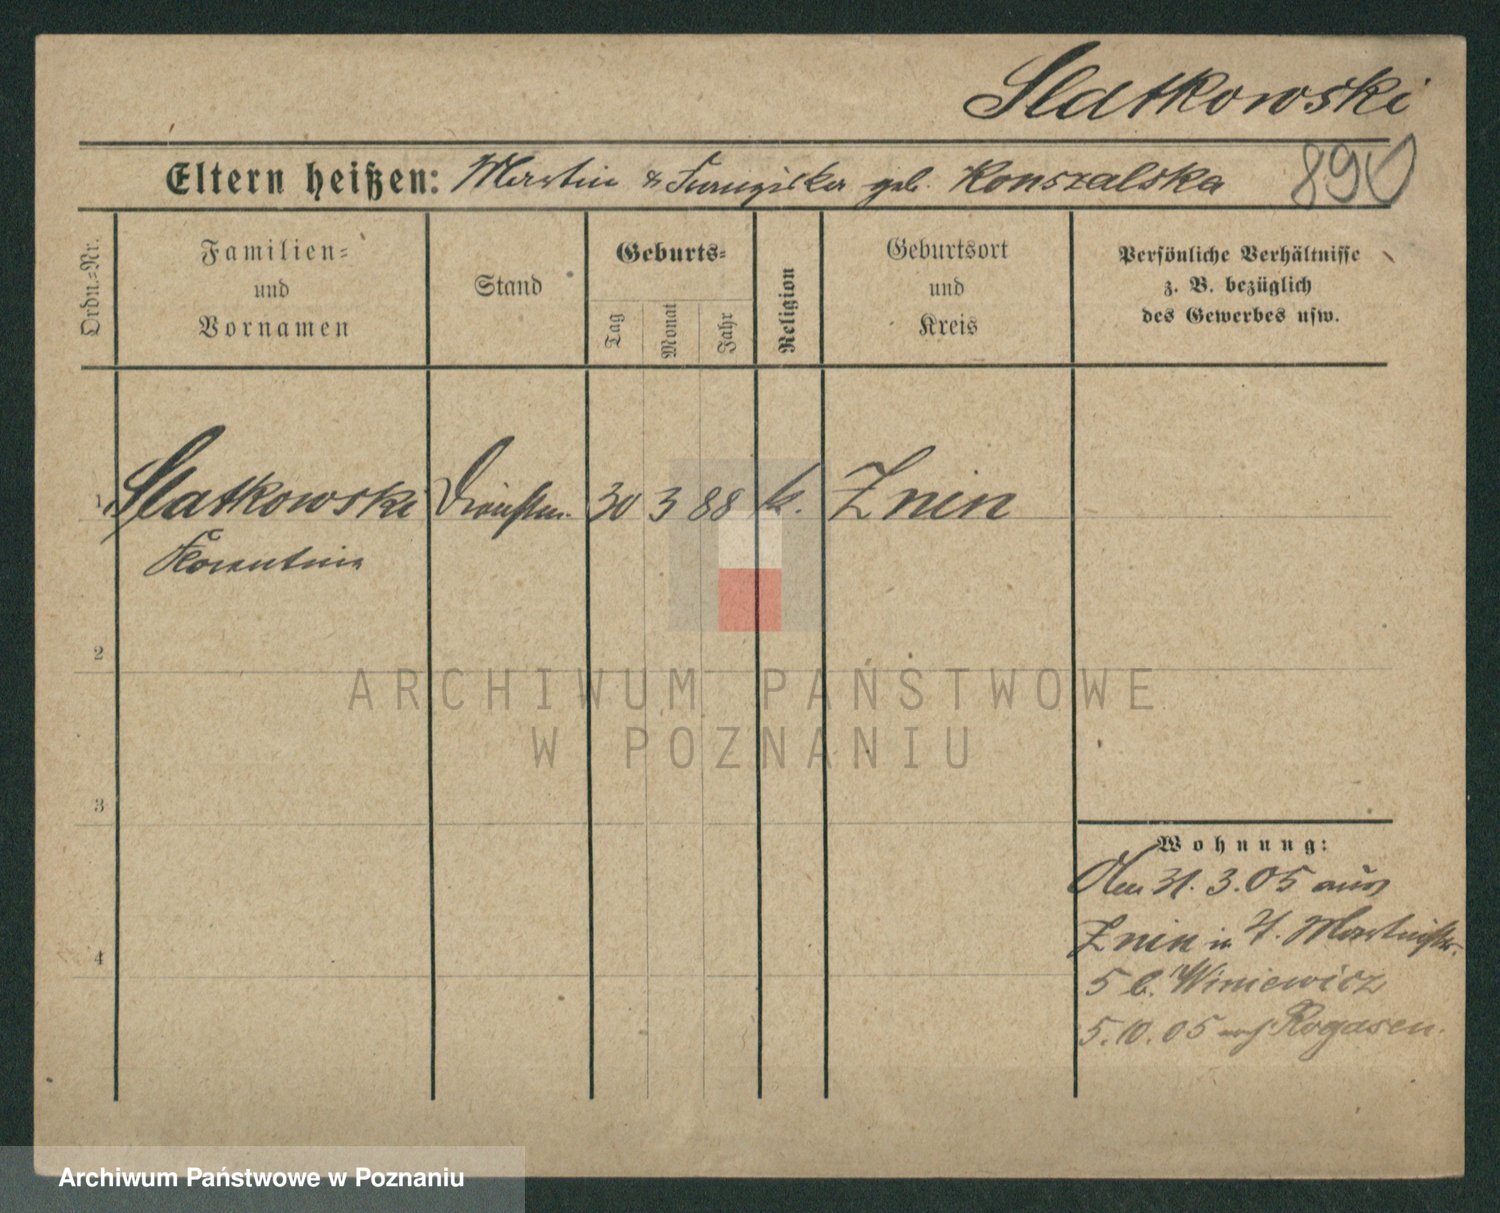 Slatkowski
Eltern heißen: Martin & Franziska geb. Konszalska 890
Ordn.=Nr.
Familien=
und
Vornamen
Stand
Geburts=
Tag
Monat
Jahr
Religion
Geburtsort
und
Kreis
Persönliche Verhältnisse
z. B. bezüglich
des Gewerbes usw.
1 Slatkowski Dienstm. 30 3 88 k. Znin
Florentina
2
3
4
Wohnung:
Am 31. 3. 05 aus
Znin in Martinstr.
5 b. Winiewicz
5. 10. 05 nach Rogasen.
ARCHIWUM PAŃSTWOWE
W POZNANIU
Archiwum Państwowe w Poznaniu